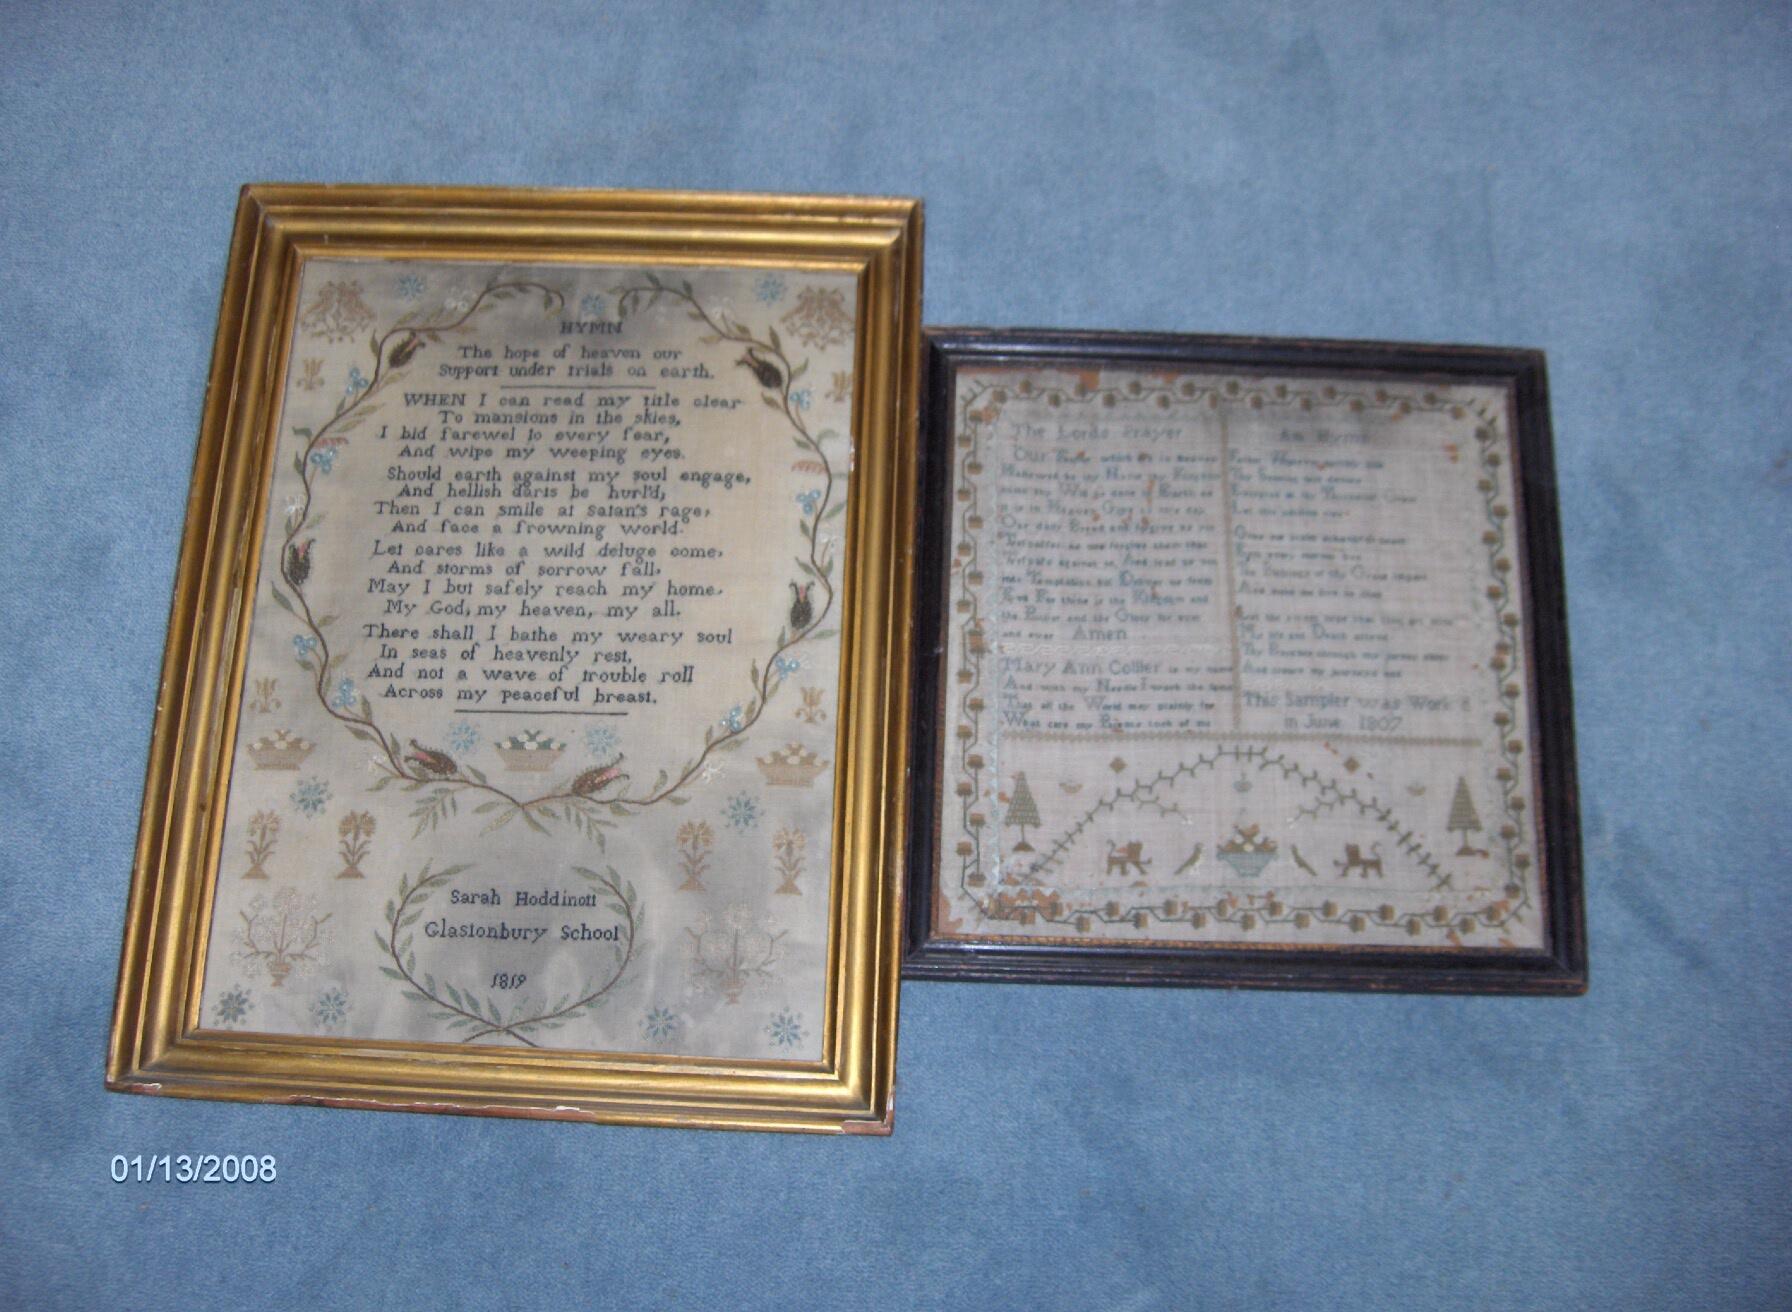 HYMN
The hope of heaven our
Support under trials on earth.
WHEN I can read my title clear
To mansions in the skies,
I bid farewel to every fear,
And wipe my weeping eyes.
Should earth against my soul engage,
And hellish darts be hurl'd,
Then I can smile at Satan's rage,
And face a frowning world.
Let cares like a wild deluge come,
And storms of sorrow fall,
May I but safely reach my home,
My God, my heaven, my all.
There shall I bathe my weary soul
In seas of heavenly rest,
And not a wave of trouble roll
Across my peaceful breast.
Sarah Hoddinott
Glastonbury School
1819
The Lords Prayer
Our Father which art in Heaven
Hallowed be thy Name thy Kingdom
come thy Will be done in Earth as
it is in Heaven Give us this day
Our daily Bread and forgive us our
Trespasses as we forgive them that
Trespass against us And lead us not
into Temptation but Deliver us from
Evil For thine is the Kingdom and
the Power and the Glory for ever
and ever Amen
Mary Ann Collier is my name
And with my Needle I work the same
That all the World may plainly see
What care my Parents took of me
An Hymn
Father
Thy
Accepted at thy Throne of Grace
Let this
Give me
From every
The Blessings of thy Grace impart
And make me live to thee
Let the sweet hope that thou art mine
My life and Death attend
Thy Presence through my journey shine
And crown my journeys end
This Sampler was Work d
in June 1807
01/13/2008